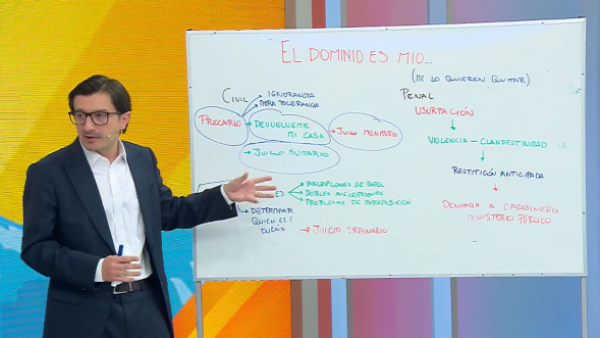 EL DOMINIO ES MIO...
(ME LO QUIEREN QUITAR)
CIVIL
IGNORANCIA
MERA TOLERANCIA
PRECARIO
DEVUELVEME
MI CASA
JUICIO MONITORIO
JUICIO SUMARIO
INSCRIPCIONES DE PAPEL
DOBLES INSCRIPCIONES
PROBLEMAS DE SUPERPOSICIÓN
DETERMINAR
QUIEN ES EL
DUEÑO
JUICIO ORDINARIO
PENAL
USURPACIÓN
VIOLENCIA - CLANDESTINIDAD
RESTITUCIÓN ANTICIPADA
DENUNCIA A CARABINEROS
MINISTERIO PÚBLICO